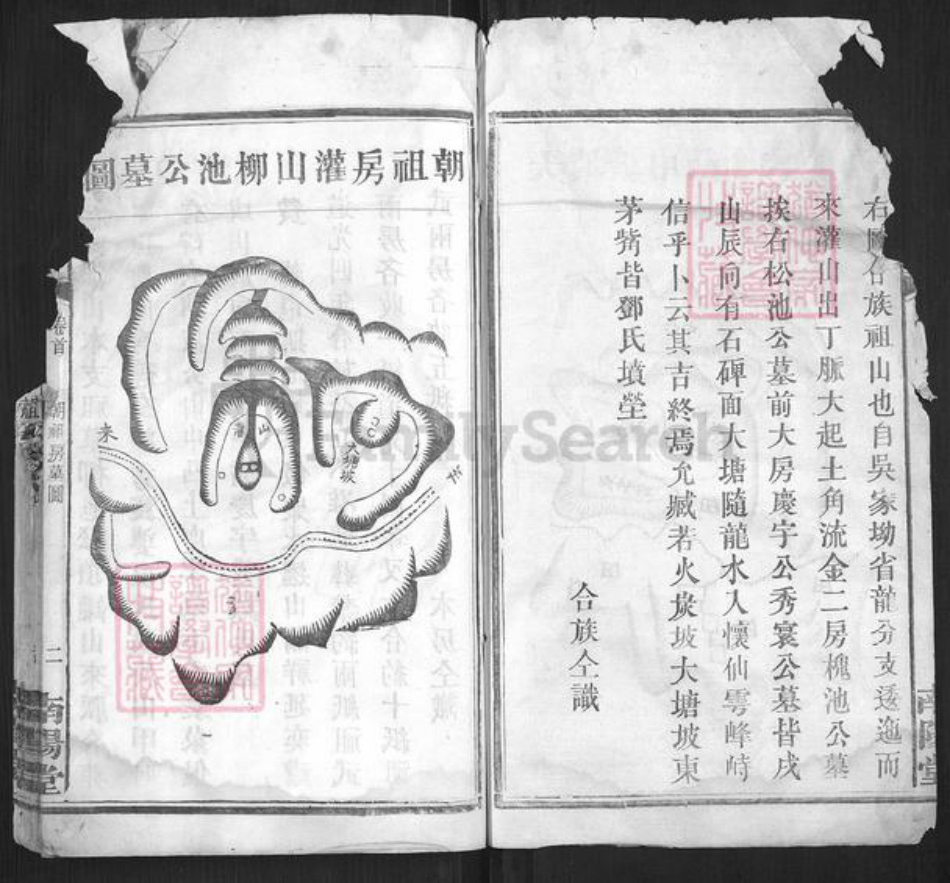 右陽合族祖山也自吳家坳省龍分支逶迤而
來灌山出丁脈大起土角流金二房槐池公墓
挨右松池公墓前大房慶宇公秀寰公墓皆戌
山辰向有石碑面大塘隨龍水入懷仙雩峰峙
信乎卜云其吉終焉允臧若火炭坡大塘坡東
茅觜皆鄧氏墳塋
合族仝識
南陽堂
朝祖房灌山柳池公墓圖
灌山
大塘坡
來
卷首
朝祖房墓圖
二
南陽堂
FamilySearch